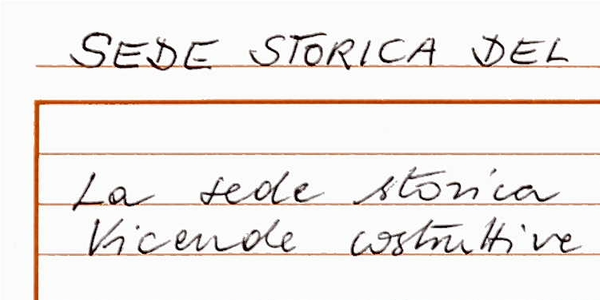 SEDE STORICA DEL
La sede storica
Vicende costruttive